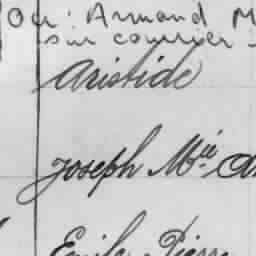 Ou: Armand M
sur courrier -
Aristide
Joseph Mie
Emile Pierre